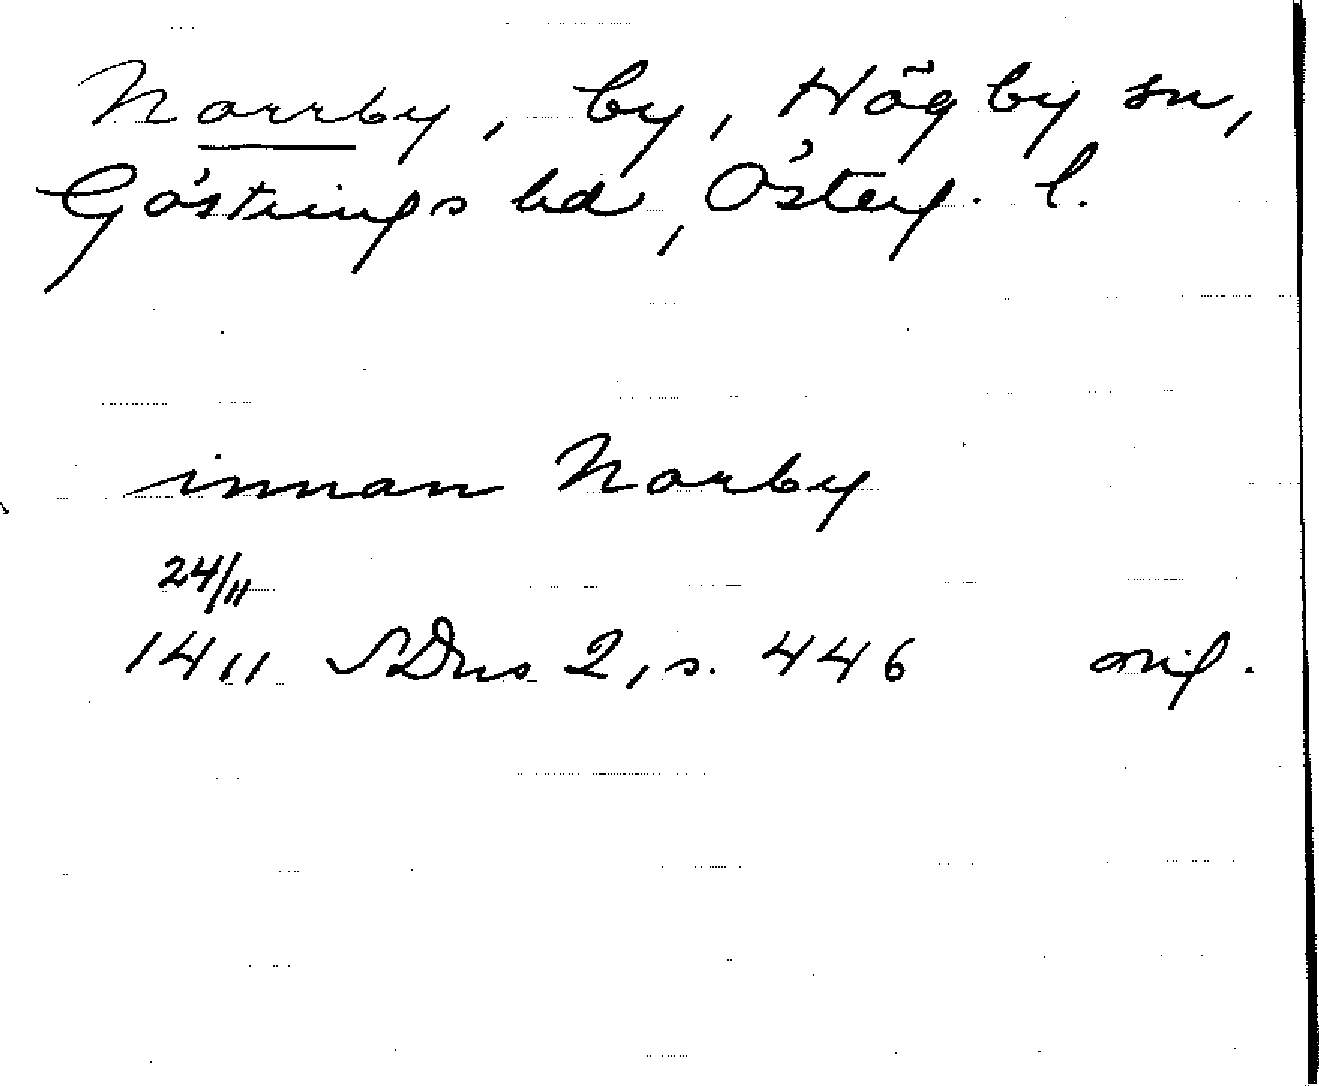 Norrby, by, Högby sn,
Göstrings hd, Österg. l.
innan Norby
24/11
1411 SDns 2, s. 446 mif.